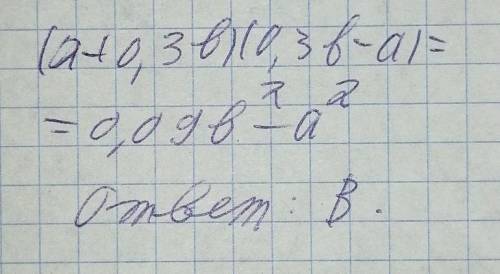 (а+0,3в)(0,3в-а)=
=0,09в²-а²
Ответ: В.